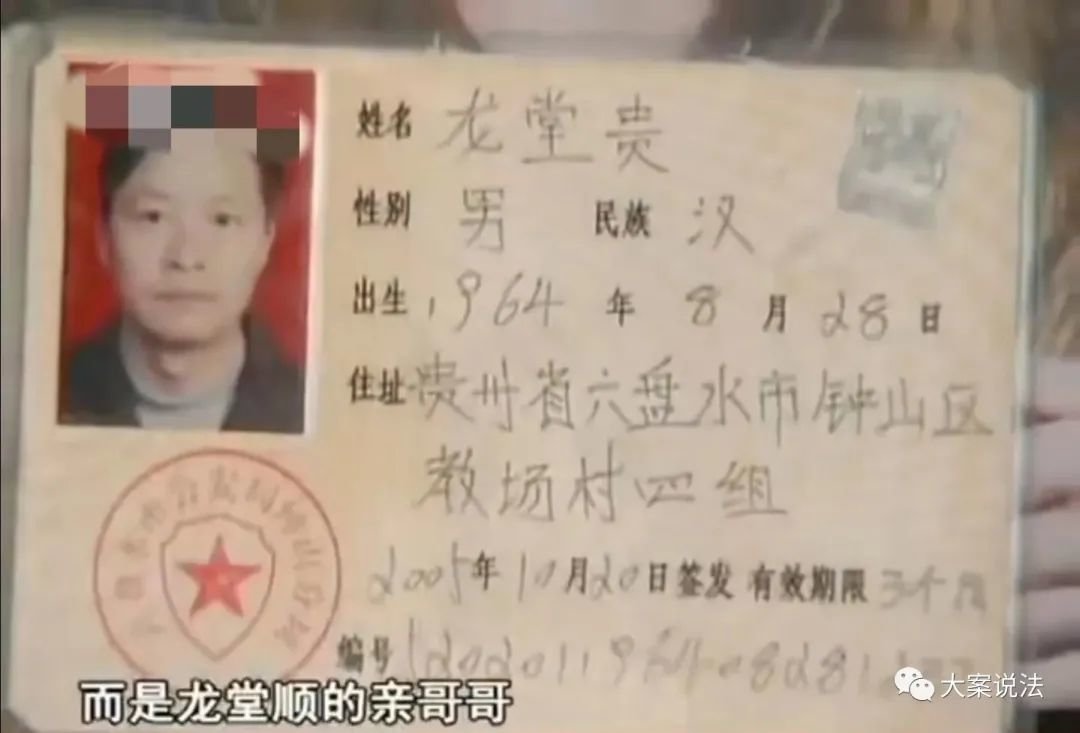 姓名 龙堂贵
性别 男 民族 汉
出生 1964 年 8 月 28 日
住址 贵州省六盘水市钟山区
教场村四组
2005年10月20日签发 有效期限 3个月
编号
六盘水市公安局钟山分局
而是龙堂顺的亲哥哥
大案说法